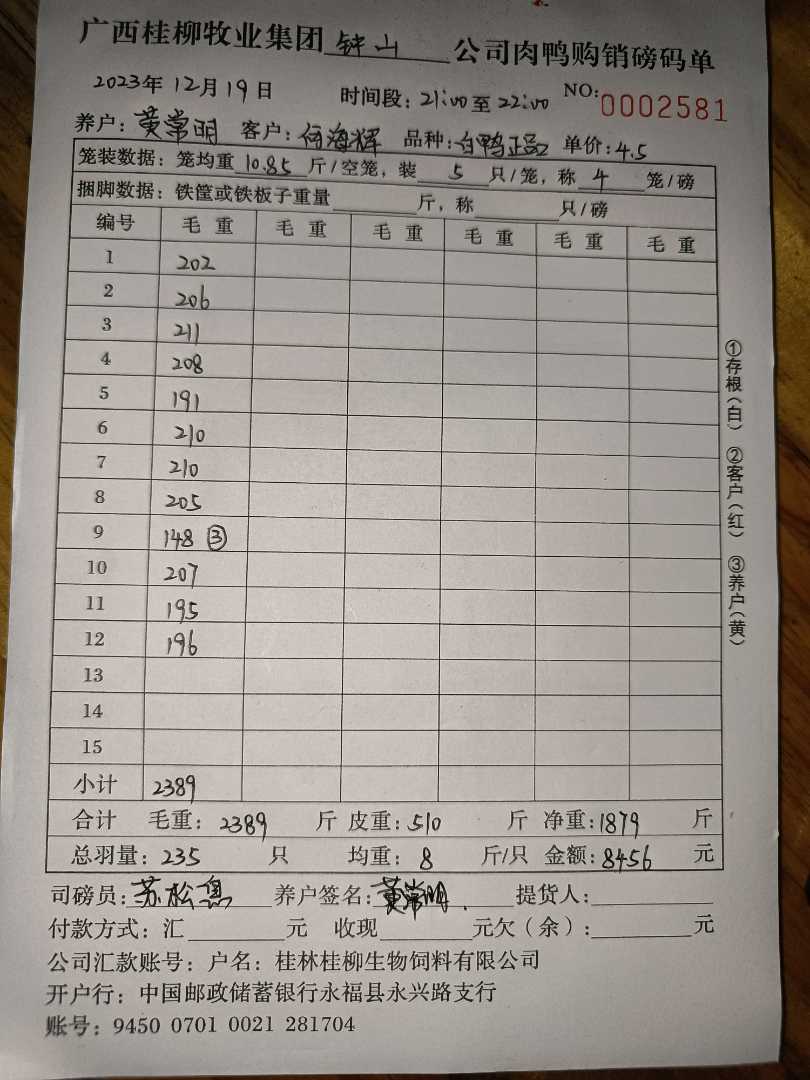 广西桂柳牧业集团钟山公司肉鸭购销磅码单
2023年12月19日 时间段:21:00至22:00 NO:0002581
养户:黄常明 客户:何海辉 品种:白鸭正品 单价:4.5
笼装数据:笼均重10.85斤/空笼,装5只/笼,称4笼/磅
捆脚数据:铁筐或铁板子重量 斤,称 只/磅
编号 毛重 毛重 毛重 毛重 毛重 毛重
1 202
2 206
3 211
4 208
5 191
6 210
7 210
8 205
9 148 ③
10 207
11 195
12 196
13
14
15
小计 2389
合计 毛重:2389 斤 皮重:510 斤 净重:1879 斤
总羽量:235 只 均重:8 斤/只 金额:8456 元
司磅员:苏松 养户签名:黄常明. 提货人:
付款方式:汇 元 收现 元欠(余): 元
公司汇款账号:户名:桂林桂柳生物饲料有限公司
开户行:中国邮政储蓄银行永福县永兴路支行
账号:9450 0701 0021 281704
①存根(白) ②客户(红) ③养户(黄)